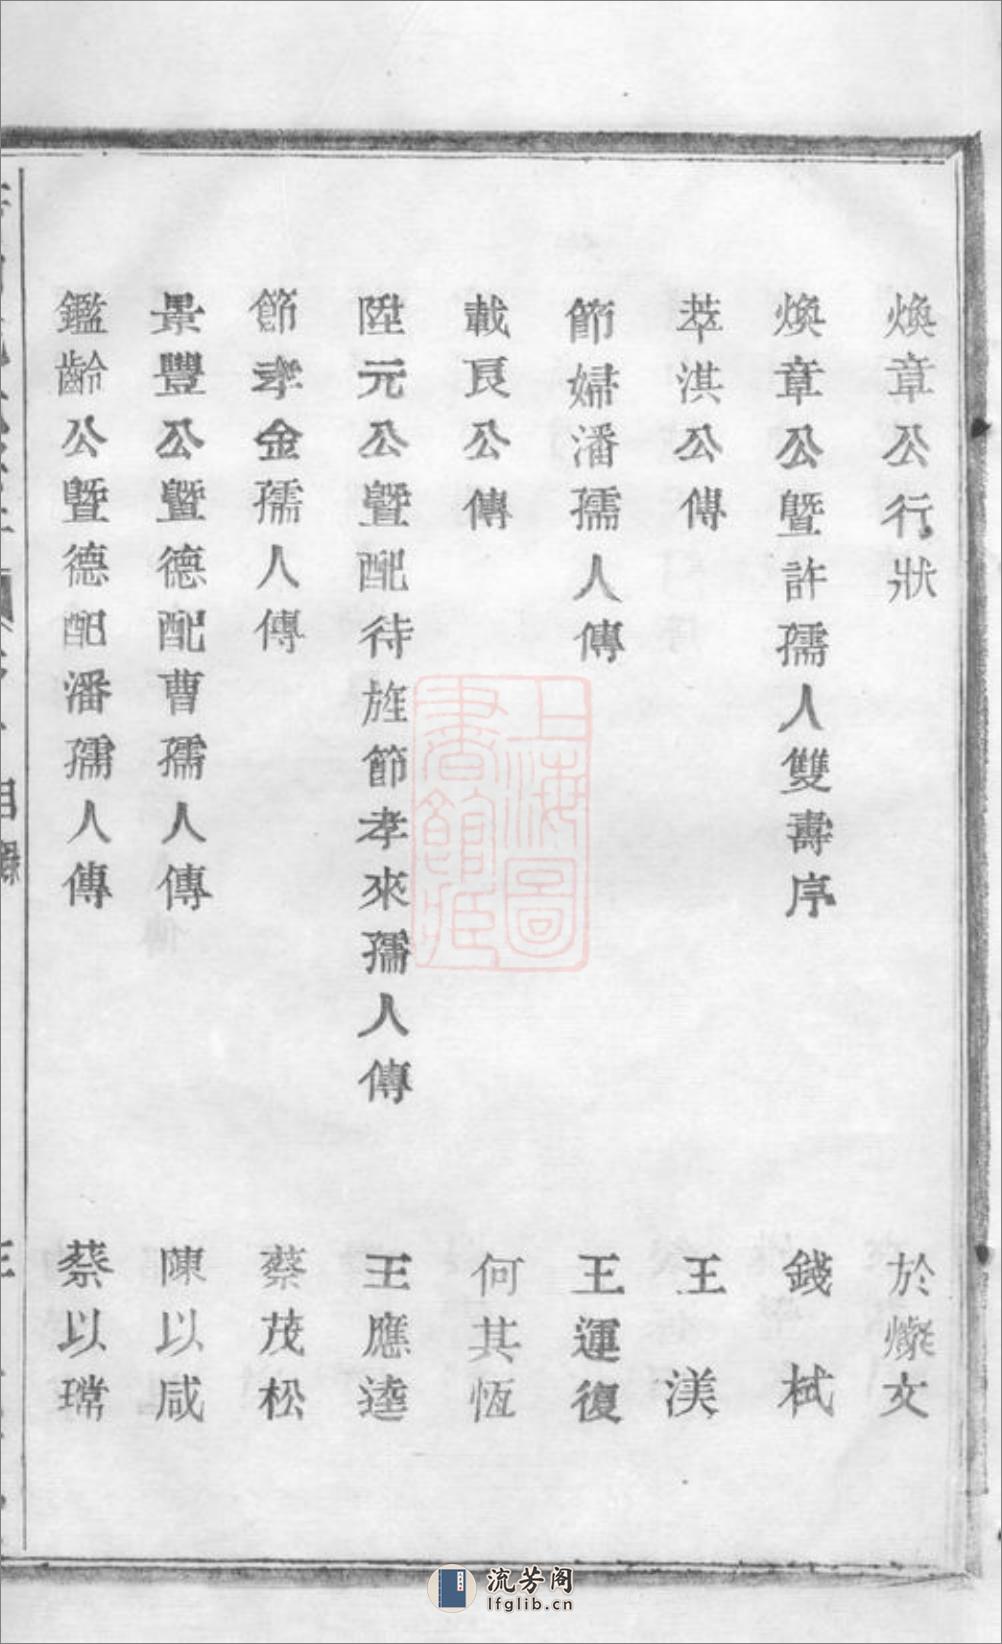 煥章公行狀 於燦文
煥章公暨許孺人雙壽序 錢栻
萃淇公傳 王渼
節婦潘孺人傳 王運復
載良公傳 何其恆
陞元公暨配待旌節孝來孺人傳 王應逵
節孝金孺人傳 蔡茂松
景豐公暨德配曹孺人傳 陳以咸
鑑齡公暨德配潘孺人傳 蔡以瑺
目錄
三
上海圖書館藏
流芳阁
lfglib.cn